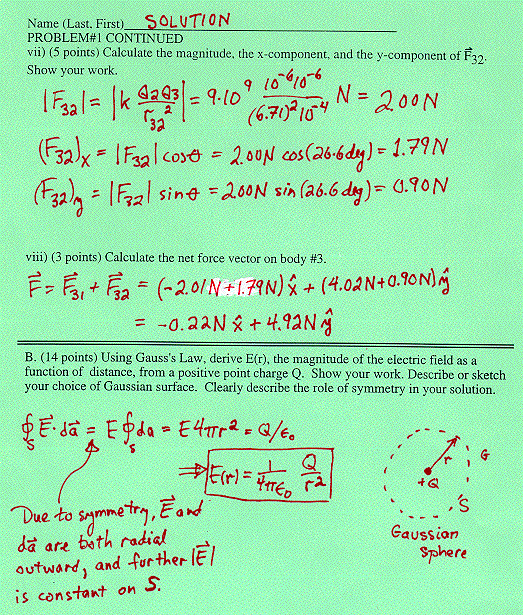 Name (Last, First) SOLUTION
PROBLEM#1 CONTINUED
vii) (5 points) Calculate the magnitude, the x-component, and the y-component of F⃗₃₂.
Show your work.
|F₃₂| = |k Q₂Q₃/r₃₂²| = 9·10⁹ 10⁻⁶10⁻⁶/(6.71)²10⁻⁴ N = 2.00N
(F₃₂)ₓ = |F₃₂| cosθ = 2.00N cos(26.6deg) = 1.79N
(F₃₂)y = |F₃₂| sinθ = 2.00N sin(26.6deg) = 0.90N
viii) (3 points) Calculate the net force vector on body #3.
F⃗ = F⃗₃₁ + F⃗₃₂ = (-2.01N+1.79N) x̂ + (4.02N+0.90N) ŷ
= -0.22N x̂ + 4.92N ŷ
B. (14 points) Using Gauss's Law, derive E(r), the magnitude of the electric field as a
function of distance, from a positive point charge Q. Show your work. Describe or sketch
your choice of Gaussian surface. Clearly describe the role of symmetry in your solution.
∮S E⃗·da⃗ = E∮S da = E4πr² = Q/ε₀
⇒ E(r) = 1/4πε₀ Q/r²
Due to symmetry, E⃗ and
da⃗ are both radial
outward, and further |E⃗|
is constant on S.
r
G
+Q
S
Gaussian
Sphere